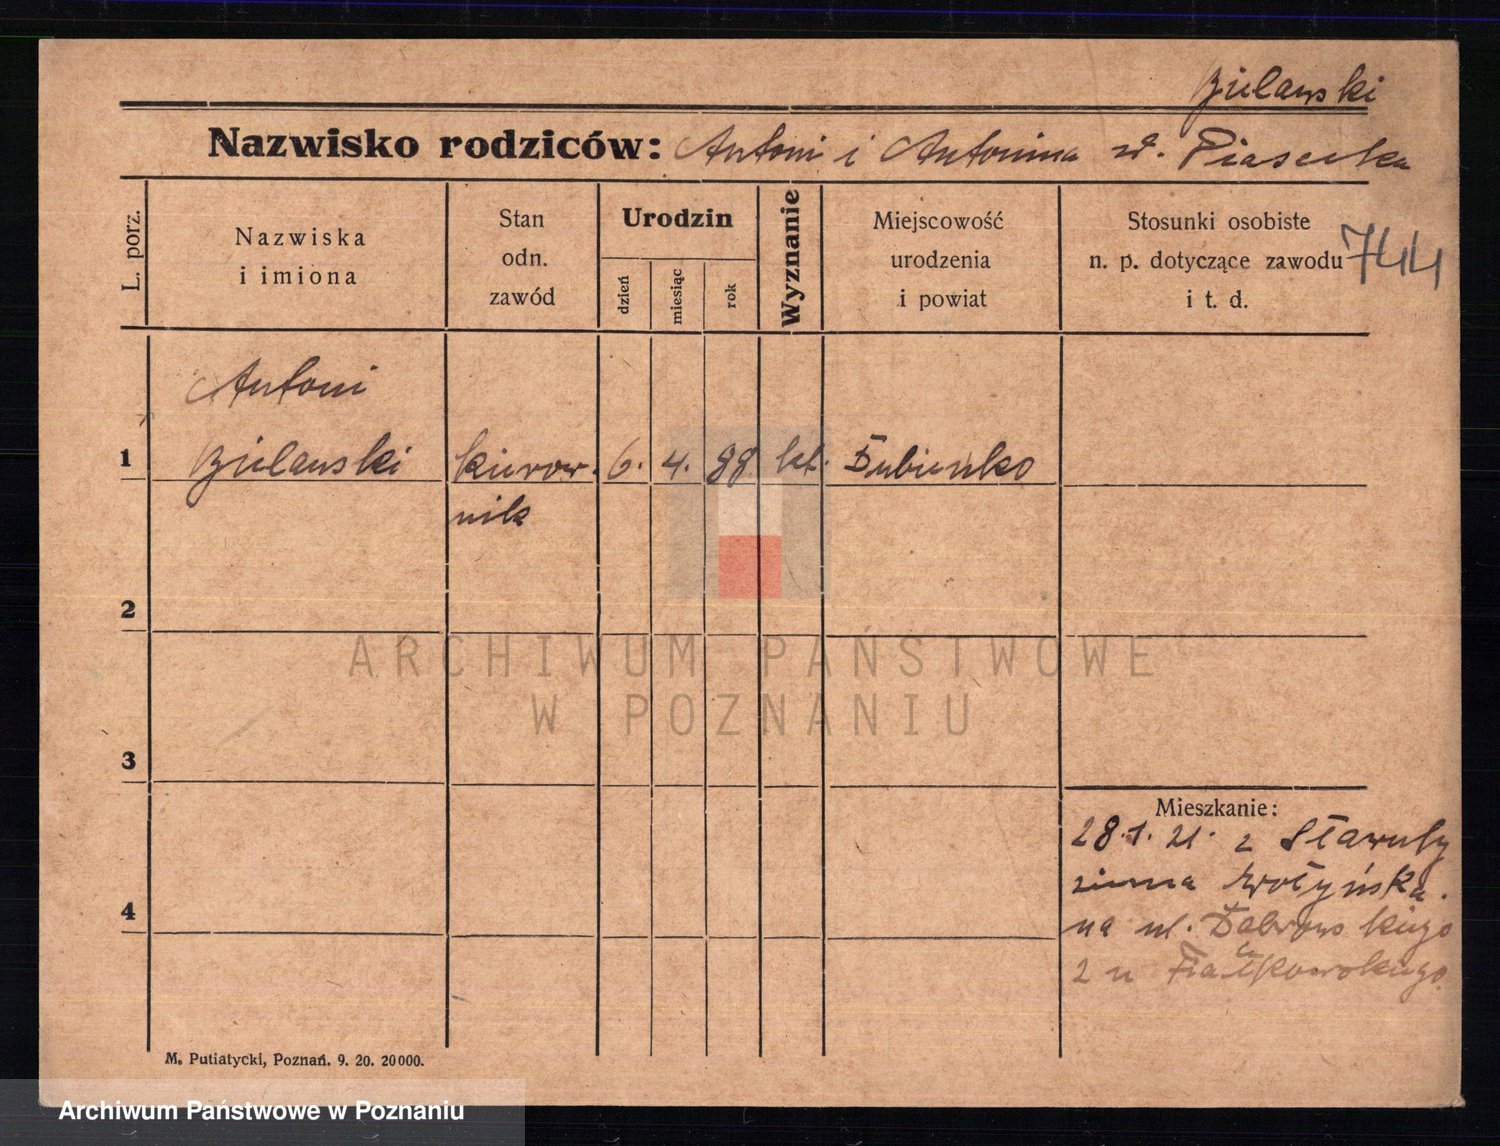 Bielawski
Nazwisko rodziców: Antoni i Antonina zd. Piasecka
L. porz.
Nazwiska
i imiona
Stan
odn.
zawód
Urodzin
dzień
miesiąc
rok
Wyznanie
Miejscowość
urodzenia
i powiat
Stosunki osobiste
n. p. dotyczące zawodu
i t. d.
744
Antoni
1 Bielawski kierow- 6. 4. 88. kt. Dubienko
nik
2
3
4
Mieszkanie:
28.1.21. z Sławuty
ziemia Wołyńska.
na ul. Dąbrowskiego
2 u Fiałkowskiego
M. Putiatycki, Poznań. 9. 20. 20000.
ARCHIWUM PAŃSTWOWE
W POZNANIU
Archiwum Państwowe w Poznaniu